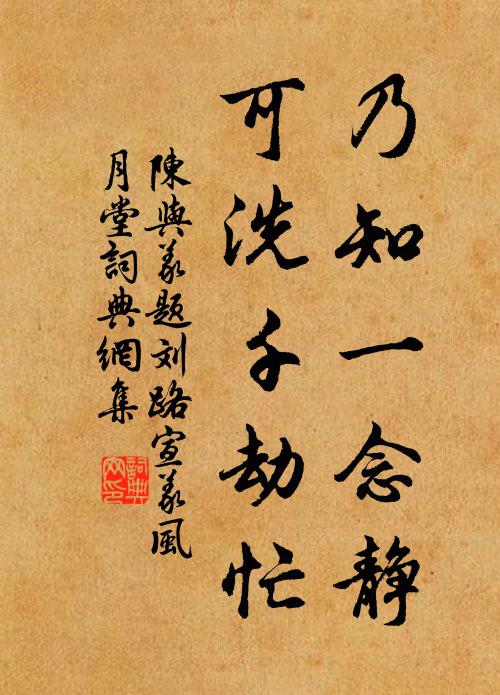 乃知一念静
可洗千劫忙
陳與義題刘路宣義風
月堂詞典網集
詞典网印